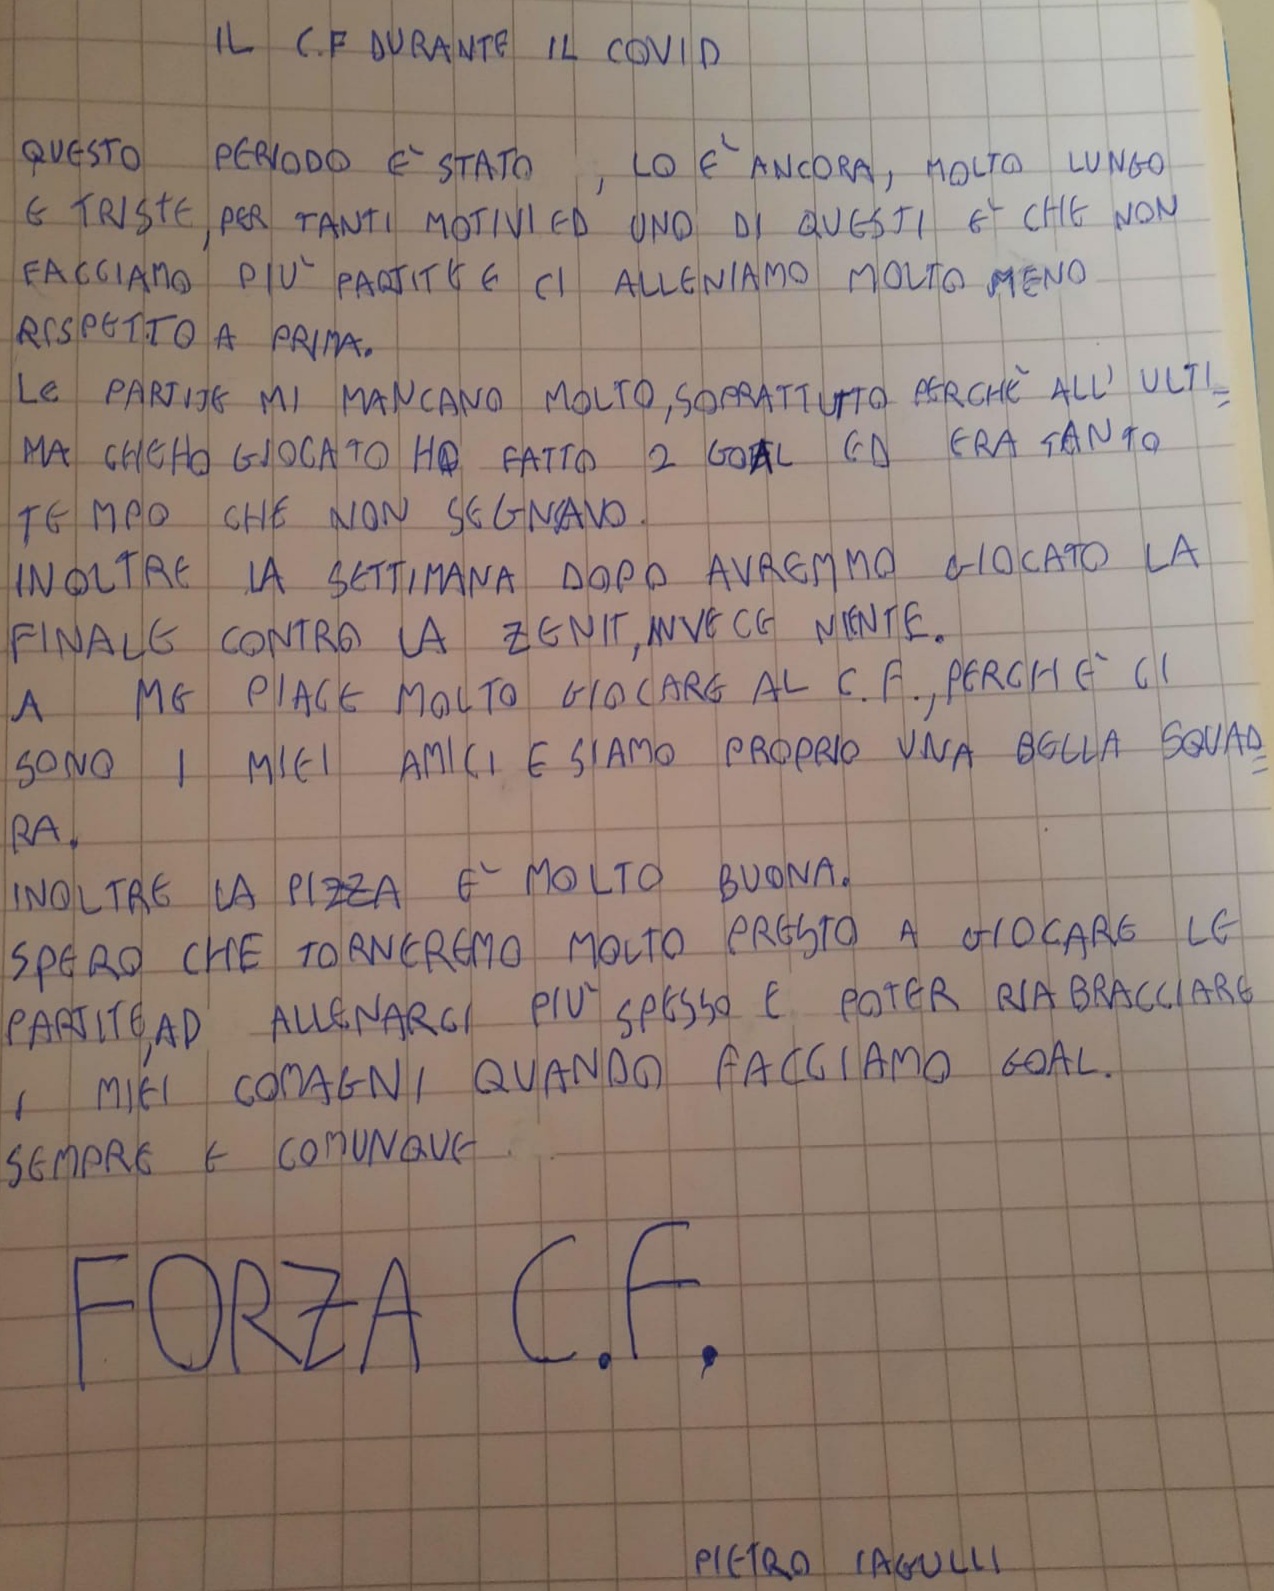 IL C.F DURANTE IL COVID
QUESTO PERIODO E' STATO , LO E' ANCORA, MOLTO LUNGO
E TRISTE, PER TANTI MOTIVI ED UNO DI QUESTI E' CHE NON
FACCIAMO PIU' PARTITE E CI ALLENIAMO MOLTO MENO
RISPETTO A PRIMA.
LE PARTITE MI MANCANO MOLTO, SOPRATTUTTO PERCHE' ALL' ULTI=
MA CHE HO GIOCATO HO FATTO 2 GOAL ED ERA TANTO
TEMPO CHE NON SEGNAVO.
INOLTRE LA SETTIMANA DOPO AVREMMO GIOCATO LA
FINALE CONTRO LA ZENIT, INVECE NIENTE.
A ME PIACE MOLTO GIOCARE AL C.F., PERCHE' CI
SONO I MIEI AMICI E SIAMO PROPRIO UNA BELLA SQUAD=
RA.
INOLTRE LA PIZZA E' MOLTO BUONA.
SPERO CHE TORNEREMO MOLTO PRESTO A GIOCARE LE
PARTITE, AD ALLENARCI PIU' SPESSO E POTER RIABBRACCIARE
I MIEI COMAGNI QUANDO FACCIAMO GOAL.
SEMPRE E COMUNQUE
FORZA C.F.
PIETRO IAGULLI